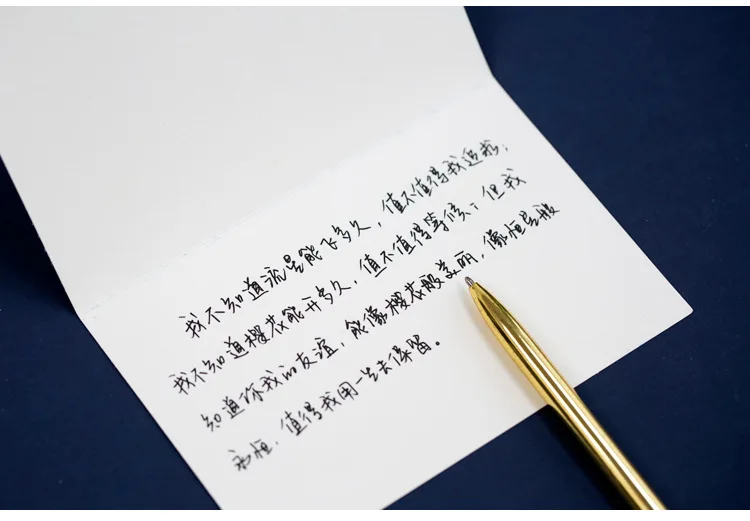 我不知道流星能飞多久，值不值得我追求；
我不知道樱花能开多久，值不值得等候；但我
知道你我的友谊，能像樱花般美丽，像恒星般
永恒，值得我用一生去保留。